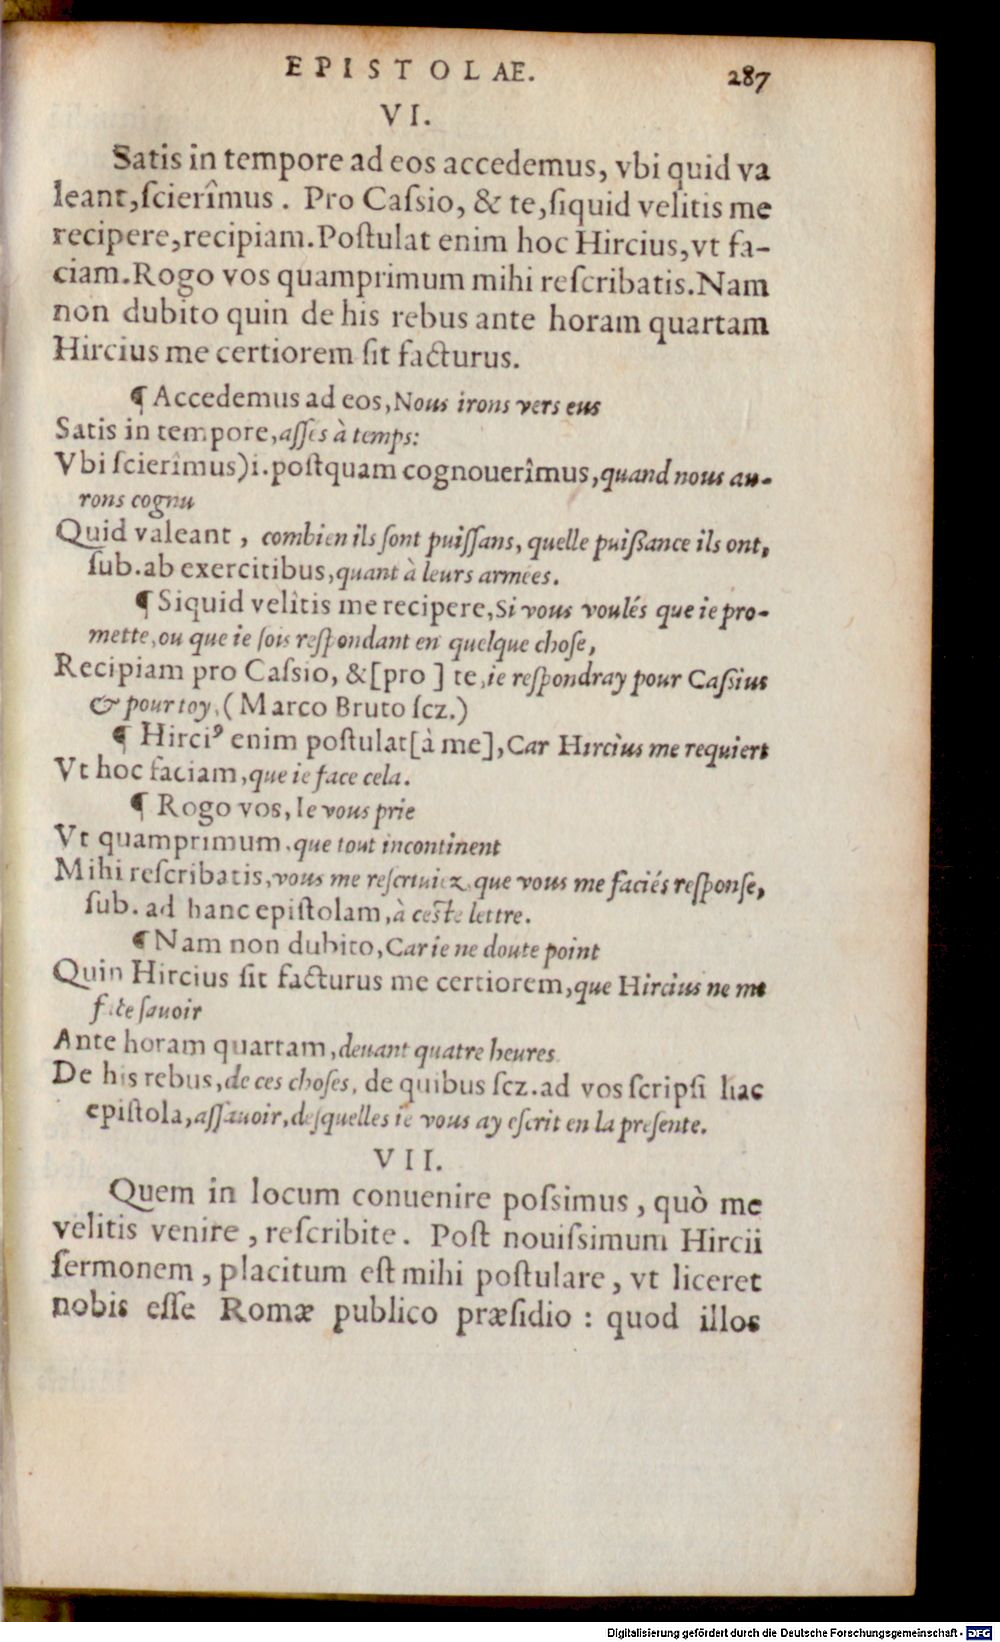 EPISTOLAE. 287
VI.
Satis in tempore ad eos accedemus, vbi quid va
leant, ſcierîmus. Pro Caſsio, & te, ſiquid velitis me
recipere, recipiam. Poſtulat enim hoc Hircius, vt fa-
ciam. Rogo vos quamprimum mihi reſcribatis. Nam
non dubito quin de his rebus ante horam quartam
Hircius me certiorem ſit facturus.
¶ Accedemus ad eos, Nous irons vers eus
Satis in tempore, aſſes à temps:
Vbi ſcierîmus) i. poſtquam cognouerîmus, quand nous au-
rons cognu
Quid valeant, combien ils ſont puiſſans, quelle puiſsance ils ont,
ſub. ab exercitibus, quant à leurs armees.
¶ Siquid velîtis me recipere, Si vous voulés que ie pro-
mette, ou que ie ſois reſpondant en quelque choſe,
Recipiam pro Caſsio, & [pro] te, ie reſpondray pour Caſsius
& pour toy, (Marco Bruto ſcz.)
¶ Hirciꝰ enim poſtulat [à me], Car Hircius me requiert
Vt hoc faciam, que ie face cela.
¶ Rogo vos, Ie vous prie
Vt quamprimum, que tout incontinent
Mihi reſcribatis, vous me reſcriuiez, que vous me faciés reſponſe,
ſub. ad hanc epiſtolam, à ceſte lettre.
¶ Nam non dubito, Car ie ne doute point
Quin Hircius ſit facturus me certiorem, que Hircius ne me
face ſauoir
Ante horam quartam, deuant quatre heures
De his rebus, de ces choſes, de quibus ſcz. ad vos ſcripſi hac
epiſtola, aſſauoir, deſquelles ie vous ay eſcrit en la preſente.
VII.
Quem in locum conuenire poſsimus, quò me
velitis venire, reſcribite. Poſt nouiſsimum Hircii
ſermonem, placitum eſt mihi poſtulare, vt liceret
nobis eſſe Romæ publico præſidio: quod illos
Digitalisierung gefördert durch die Deutsche Forschungsgemeinschaft - DFG